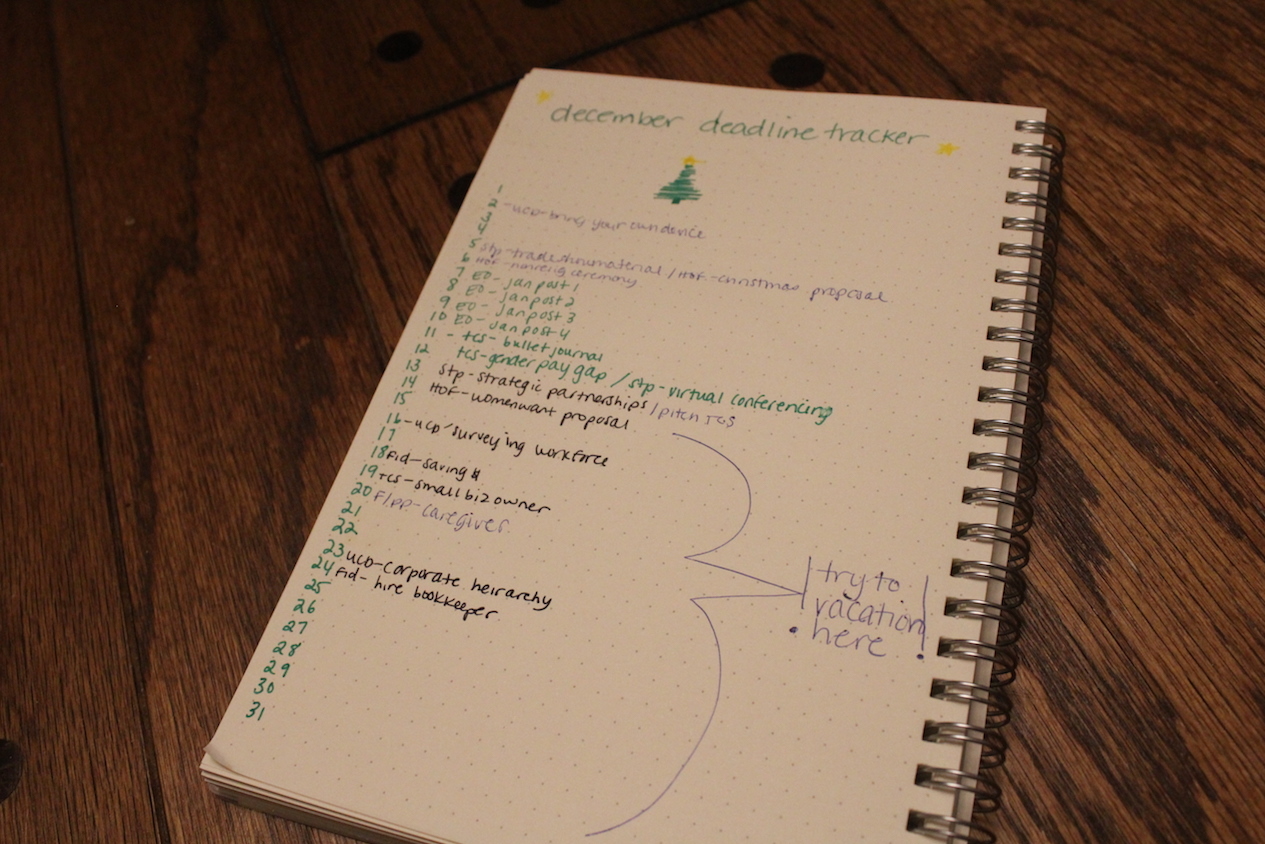 december deadline tracker
1
2 -UCD-bring your own device
3
4
5 Stp-tradeshow material / HOF-christmas proposal
6 HOF-nonrelig ceremony
7 ED- jan post 1
8 ED- jan post 2
9 ED- jan post 3
10 ED- jan post 4
11 - tcs- bullet journal
12 tcs-gender pay gap / stp-virtual conferencing
13 Stp-strategic partnerships / pitch TCS
14 HOF-womenwant proposal
15
16 -UCD-surveying workforce
17
18 Fid-saving $
19 TCS-small biz owner
20 F/pp-caregiver
21
22
23 UCD-corporate heirarchy
24 Fid- hire bookkeeper
25
26
27
28
29
30
31
! try to !
vacation
here